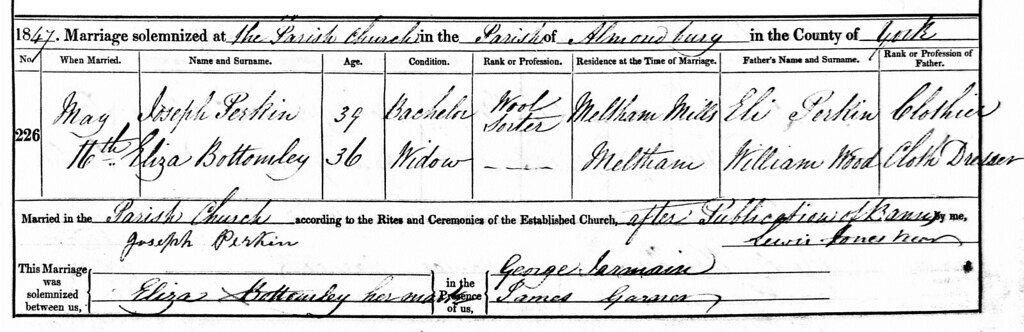 1847. Marriage solemnized at the Parish Church in the Parish of Almondbury in the County of York
No. When Married. Name and Surname. Age. Condition. Rank or Profession. Residence at the Time of Marriage. Father's Name and Surname. Rank or Profession of Father.
226 May Joseph Perkin 39 Bachelor Wool Sorter Meltham Mills Eli Perkin Clothier
16th Eliza Bottomley 36 Widow — Meltham William Wood Cloth Dresser
Married in the Parish Church according to the Rites and Ceremonies of the Established Church, after Publication of Banns by me,
Joseph Perkin Lewis Jones
This Marriage was solemnized between us, Eliza X Bottomley her mark in the Presence of us, George Jarmain
James Garner